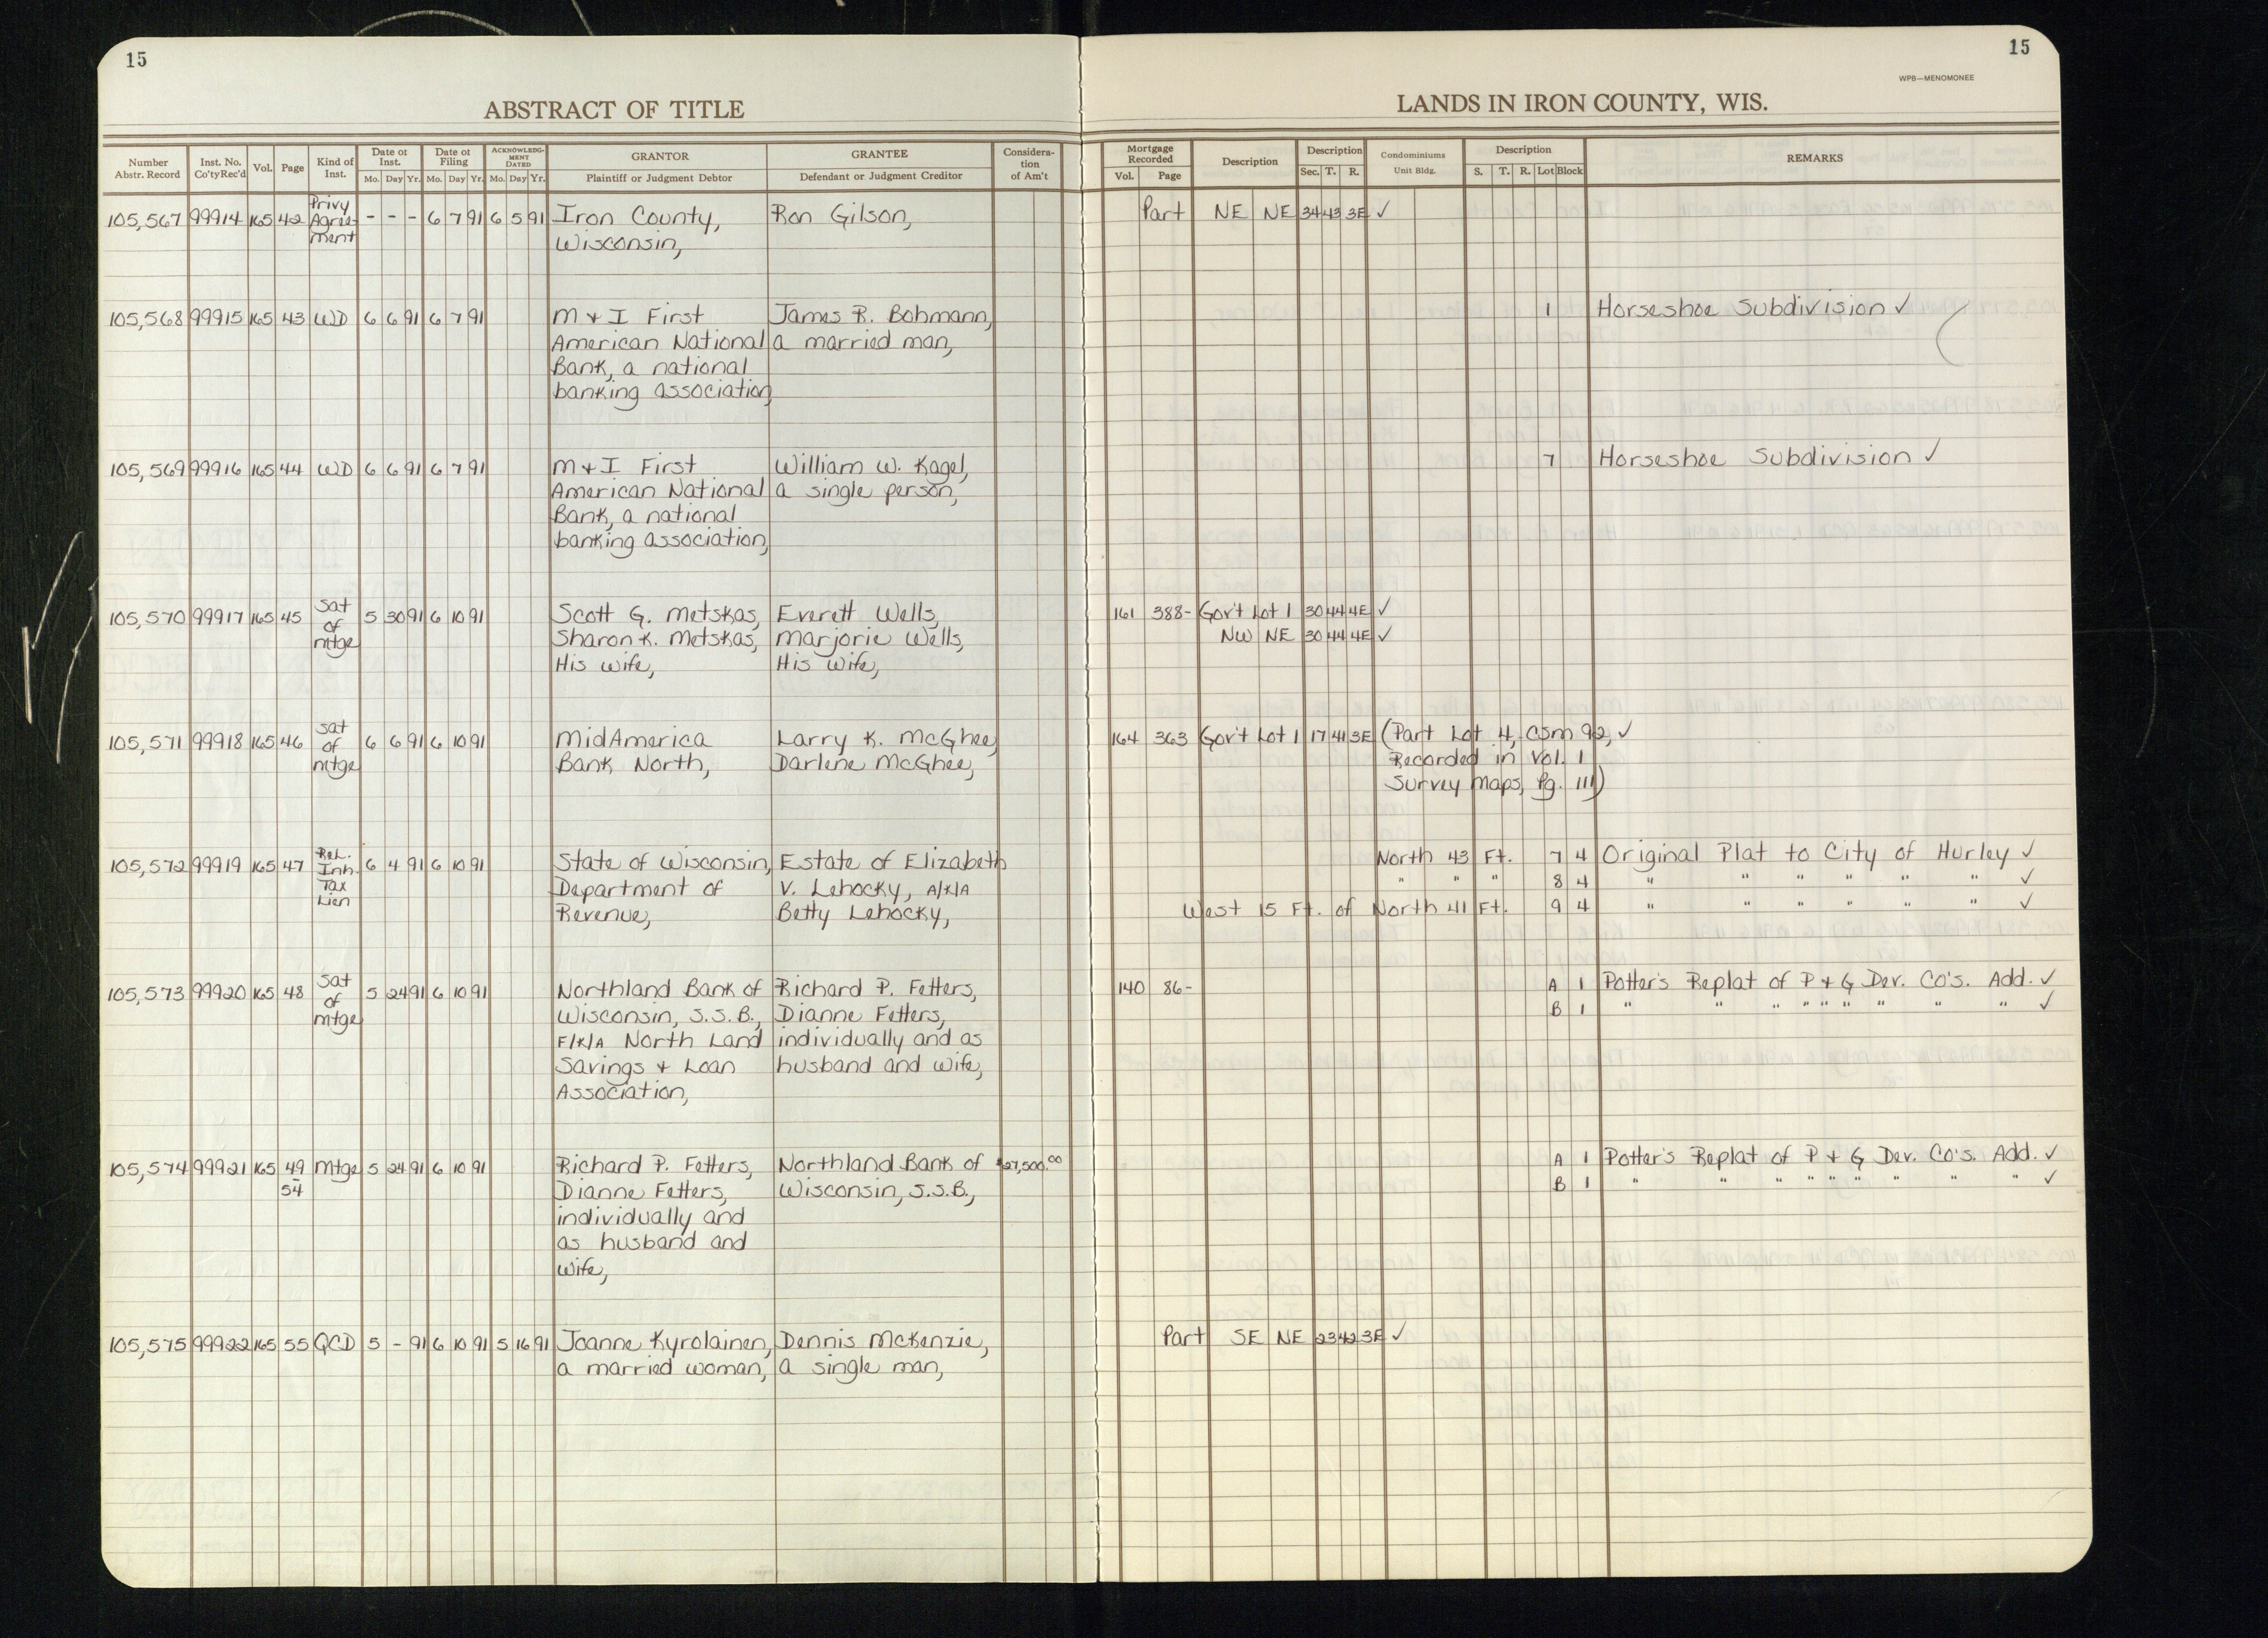 15
15
WPB—MENOMONEE
ABSTRACT OF TITLE
LANDS IN IRON COUNTY, WIS.
Number Abstr. Record | Inst. No. Co'ty Rec'd | Vol. | Page | Kind of Inst. | Date of Inst. Mo. Day Yr. | Date of Filing Mo. Day Yr. | ACKNOWLEDGMENT DATED Mo. Day Yr. | GRANTOR Plaintiff or Judgment Debtor | GRANTEE Defendant or Judgment Creditor | Consideration of Am't | Mortgage Recorded Vol. Page | Description | Description Sec. T. R. | Condominiums Unit Bldg. | Description S. T. R. Lot Block | REMARKS
105,567 99914 165 42 Privy Agreement - - - 6 7 91 6 5 91 Iron County, Ron Gilson, Part NE NE 34 43 3E ✓
Wisconsin,
105,568 99915 165 43 WD 6 6 91 6 7 91 M + I First James R. Bohmann, 1 Horseshoe Subdivision ✓
American National a married man,
Bank, a national
banking association,
105,569 99916 165 44 WD 6 6 91 6 7 91 M + I First William W. Kagel, 7 Horseshoe Subdivision ✓
American National a single person,
Bank, a national
banking association,
105,570 99917 165 45 Sat of mtge 5 30 91 6 10 91 Scott G. Metskas, Everett Wells, 161 388- Gov't Lot 1 30 44 4E ✓
Sharon K. Metskas, Marjorie Wells, NW NE 30 44 4E ✓
His wife, His wife,
105,571 99918 165 46 Sat of mtge 6 6 91 6 10 91 MidAmerica Larry K. McGhee, 164 363 Gov't Lot 1 17 41 3E (Part Lot 4, CSM 92, ✓
Bank North, Darlene McGhee, Recorded in Vol. 1
Survey Maps, Pg. 111)
105,572 99919 165 47 Rel. Inh. Tax Lien 6 4 91 6 10 91 State of Wisconsin, Estate of Elizabeth North 43 Ft. 7 4 Original Plat to City of Hurley ✓
Department of V. Lehocky, A/K/A " " " 8 4 " " " " " " ✓
Revenue, Betty Lehocky, West 15 Ft. of North 41 Ft. 9 4 " " " " " " ✓
105,573 99920 165 48 Sat of mtge 5 24 91 6 10 91 Northland Bank of Richard P. Fetters, 140 86- A 1 Potter's Replat of P + G Dev. Co's. Add. ✓
Wisconsin, S.S.B., Dianne Fetters, B 1 " " " " " " " " " ✓
F/K/A North Land individually and as
Savings + Loan husband and wife,
Association,
105,574 99921 165 49-54 Mtge 5 24 91 6 10 91 Richard P. Fetters, Northland Bank of $27,500.00 A 1 Potter's Replat of P + G Dev. Co's. Add. ✓
Dianne Fetters, Wisconsin, S.S.B., B 1 " " " " " " " " " ✓
individually and
as husband and
wife,
105,575 99922 165 55 QCD 5 - 91 6 10 91 5 16 91 Joanne Kyrolainen, Dennis McKenzie, Part SE NE 23 42 3E ✓
a married woman, a single man,